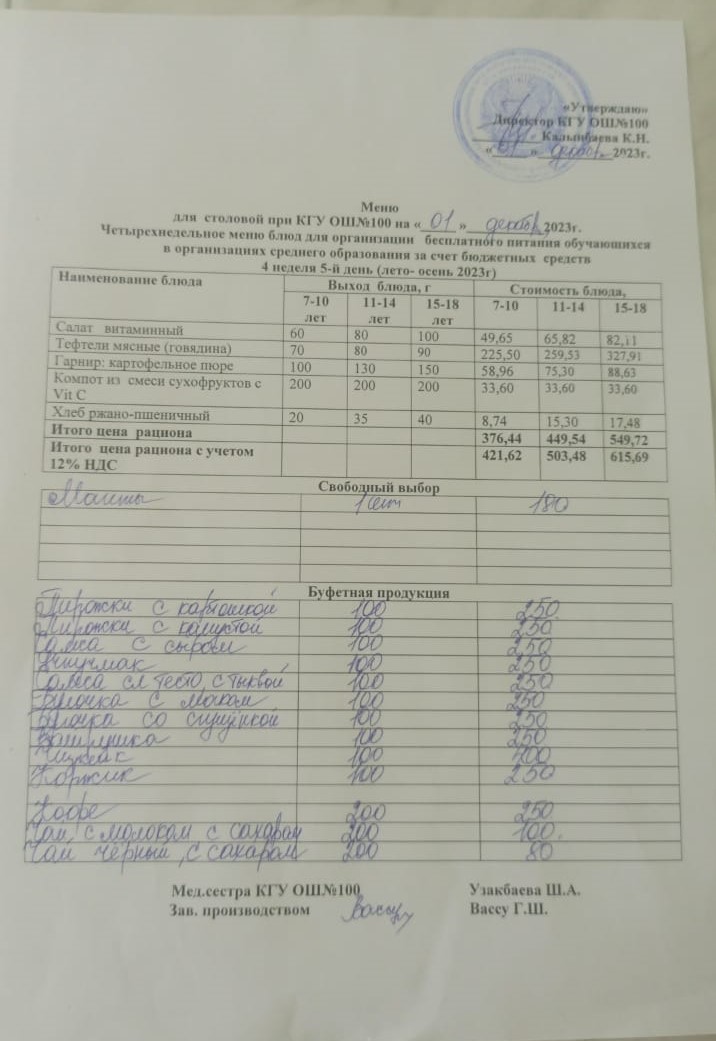 «Утверждаю»
Директор КГУ ОШ№100
Калынбаева К.Н.
«01» декабр 2023г.
Меню
для столовой при КГУ ОШ№100 на « 01 » декабр 2023г.
Четырехнедельное меню блюд для организации бесплатного питания обучающихся
в организациях среднего образования за счет бюджетных средств
4 неделя 5-й день (лето- осень 2023г)
Наименование блюда Выход блюда, г Стоимость блюда,
7-10 лет 11-14 лет 15-18 лет 7-10 11-14 15-18
Салат витаминный 60 80 100 49,65 65,82 82,11
Тефтели мясные (говядина) 70 80 90 225,50 259,53 327,91
Гарнир: картофельное пюре 100 130 150 58,96 75,30 88,63
Компот из смеси сухофруктов с Vit C 200 200 200 33,60 33,60 33,60
Хлеб ржано-пшеничный 20 35 40 8,74 15,30 17,48
Итого цена рациона 376,44 449,54 549,72
Итого цена рациона с учетом 12% НДС 421,62 503,48 615,69
Свободный выбор
Манты 1 шт 180
Буфетная продукция
Пирожки с картошкой 100 250
Пирожки с капустой 100 250
Самса с сыром 100 250
Эчпучмак 100 250
Самса сл тесто с тыквой 100 250
Булочка с маком 100 250
Булочка со сгущёнкой 100 250
Ватрушка 100 250
Чизкейк 100 400
Коржик 100 250
Кофе 200 250
Чай с молоком с сахаром 200 100
Чай чёрный, с сахаром 200 80
Мед.сестра КГУ ОШ№100 Узакбаева Ш.А.
Зав. производством Вассу Г.Ш.